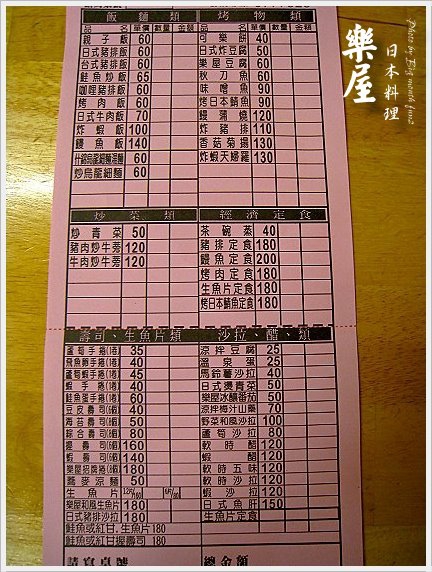 飯麵類
品名 單價 數量 金額
親子飯 60
日式豬排飯 60
台式豬排飯 60
鮭魚炒飯 65
咖哩豬排飯 60
烤肉飯 60
日式牛肉飯 70
炸蝦飯 100
鰻魚飯 140
什錦烏龍細麵湯麵 60
炒烏龍細麵 60
烤物類
品名 單價 數量 金額
可樂餅 40
日式炸豆腐 50
樂屋豆腐 60
秋刀魚 60
味噌魚 90
烤日本鯖魚 90
鰻蒲燒 120
炸豬排 110
香菇菊揚 130
炸蝦天婦羅 130
炒菜類
品名 單價 數量 金額
炒青菜 50
豬肉炒牛蒡 120
牛肉炒牛蒡 120
經濟定食
品名 單價 數量 金額
茶碗蒸 40
豬排定食 180
鰻魚定食 200
烤肉定食 180
生魚片定食 180
烤日本鯖魚定食 180
壽司、生魚片類
蘆筍手捲(捲) 35
飛魚卵手捲(捲) 40
蘆筍蝦手捲(捲) 45
蝦手捲(捲) 40
鮭魚蛋手捲(捲) 60
豆皮壽司(6個) 40
海苔壽司(6個) 50
綜合壽司(6個) 80
壽司(6個) 150
蝦壽司(6個) 140
樂屋招牌捲(6個) 180
蕎麥涼麵 50
生魚片
樂屋和風生魚片 180
日式豬排沙拉 180
鮭魚或紅甘,生魚片 180
鮭魚或紅甘握壽司 180
沙拉、醋、類
涼拌豆腐 25
溫泉蛋 25
馬鈴薯沙拉 40
日式燙青菜 50
樂屋冰釀番茄 50
涼拌梅汁山藥 70
野菜和風沙拉 100
蘆筍沙拉 80
軟時醋 120
蝦醋 120
軟時五味 120
軟時沙拉 120
蝦沙拉 120
日式魚肝 150
生魚片定食
請寫桌號
總金額
樂屋
日本料理
Photo by Big mouth fan2